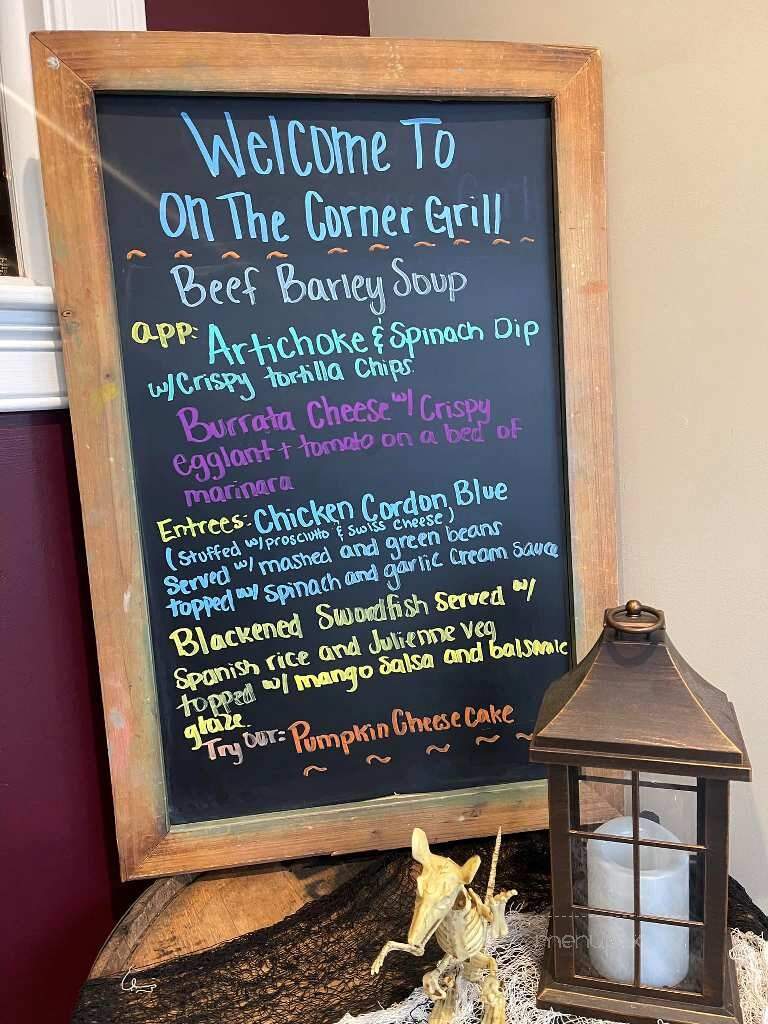 Welcome To
On The Corner Grill
Beef Barley Soup
app: Artichoke & Spinach Dip
w/Crispy tortilla Chips
Burrata Cheese w/ Crispy
egglant + tomato on a bed of
marinara
Entrees: Chicken Cordon Blue
(Stuffed w/ prosciutto & Swiss cheese)
Served w/ mashed and green beans
topped w/ spinach and garlic cream sauce
Blackened Swordfish served w/
Spanish rice and Julienne veg
topped w/ mango salsa and balsamic
glaze.
Try our: Pumpkin Cheese cake